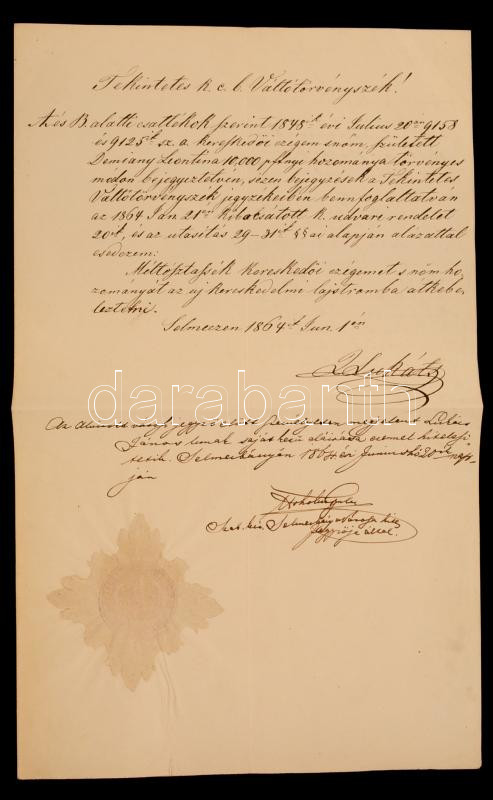 Tekintetes k. c. b. Váltótörvényszék!
A. és B. alatti csatlékok szerint 1848ik évi Julius 20án 9158
és 9125ik sz. a. kereskedői czégem s nőm, született
Demiány Leontina 10,000 pftnyi hozománya törvényes
módon bejegyeztetvén, s ezen bejegyzések a Tekintetes
Váltótörvényszék jegyzékeiben bennfoglaltatván
az 1864 Ján 21én kibocsátott k. udvari rendelet
20ik, és az utasítás 29-31ik §§ai alapján alázattal
esedezem:
Méltóztassék kereskedői czégemet s nőm ho-
zományát az új kereskedelmi lajstromba átkebe-
leztetni.
Selmeczen 1864ik Jun. 1én
J Lukáts
darabanth
Az alulirt városi jegyző előtt személyesen megjelent Lukács
János úrnak saját kezű aláirása ezennel hitelesít-
tetik. Selmeczbányán 1864 évi Junius hó 20ik nap-
ján
Szab. kir. Selmeczbánya városa
jegyzője által.